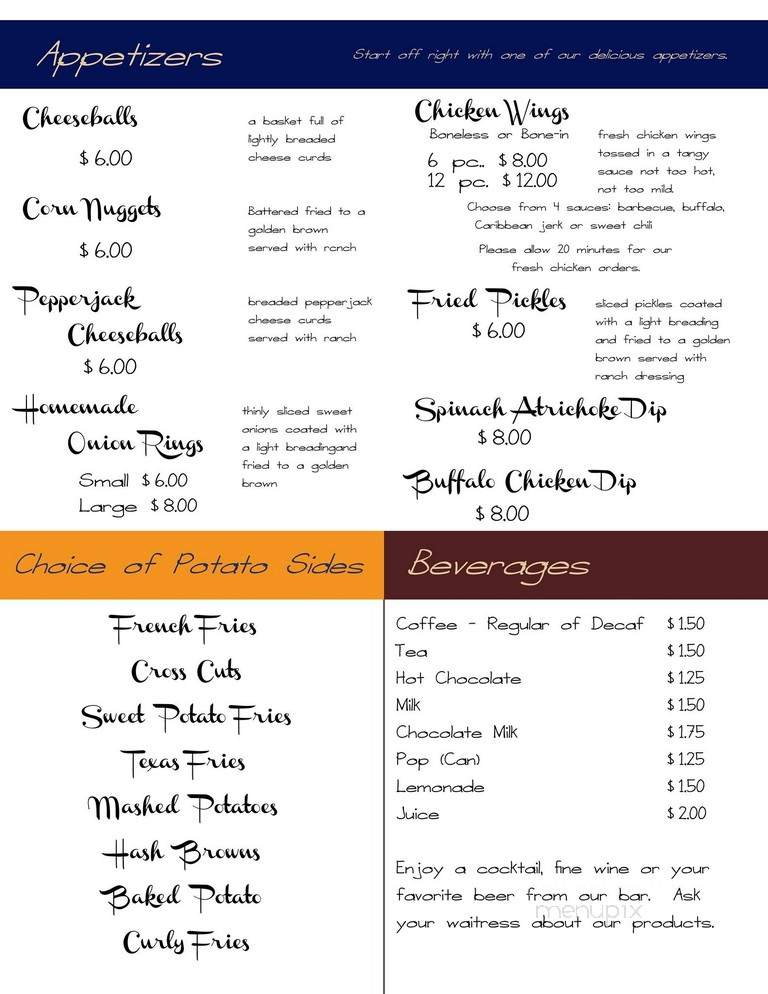 Appetizers
Start off right with one of our delicious appetizers.
Cheeseballs
$ 6.00
a basket full of
lightly breaded
cheese curds
Corn Nuggets
$ 6.00
Battered fried to a
golden brown
served with rcnch
Pepperjack
Cheeseballs
$ 6.00
breaded pepperjack
cheese curds
served with ranch
Homemade
Onion Rings
Small $ 6.00
Large $ 8.00
thinly sliced sweet
onions coated with
a light breadingand
fried to a golden
brown
Chicken Wings
Boneless or Bone-in
6 pc.. $ 8.00
12 pc. $ 12.00
fresh chicken wings
tossed in a tangy
sauce not too hot,
not too mild.
Choose from 4 sauces: barbecue, buffalo,
Caribbean jerk or sweet chili
Please allow 20 minutes for our
fresh chicken orders.
Fried Pickles
$ 6.00
sliced pickles coated
with a light breading
and fried to a golden
brown served with
ranch dressing
Spinach Atrichoke Dip
$ 8.00
Buffalo Chicken Dip
$ 8.00
Choice of Potato Sides
French Fries
Cross Cuts
Sweet Potato Fries
Texas Fries
Mashed Potatoes
Hash Browns
Baked Potato
Curly Fries
Beverages
Coffee - Regular of Decaf $ 1.50
Tea $ 1.50
Hot Chocolate $ 1.25
Milk $ 1.50
Chocolate Milk $ 1.75
Pop (Can) $ 1.25
Lemonade $ 1.50
Juice $ 2.00
Enjoy a cocktail, fine wine or your
favorite beer from our bar. Ask
your waitress about our products.
menupix